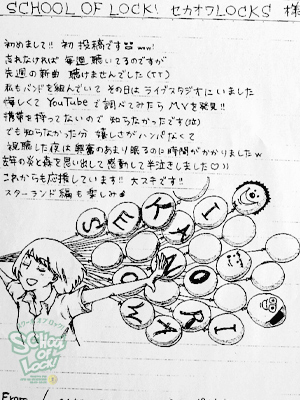 SCHOOL OF LOCK! セカオワLOCKS 様
初めまして!! 初投稿です ww!
毎週聴いてるのですが
先週の新曲 聴けませんでした(TT)
私もバンドを組んでいて その日はライブスタジオにいました
悔しくて YouTubeで調べてみたら MVを発見!!
携帯を持ってないので 知らなかったです(泣)
でも知らなかった分 嬉しさがハンパなくて
視聴した夜は興奮のあまり眠るのに時間がかかりましたw
去年の炎と森を思い出して感動して半泣きしました♡))
これからも応援しています!! 大スキです!!
スターランド編も楽しみ
SEKAI
NO
OWARI
SCHOOL OF LOCK!
From